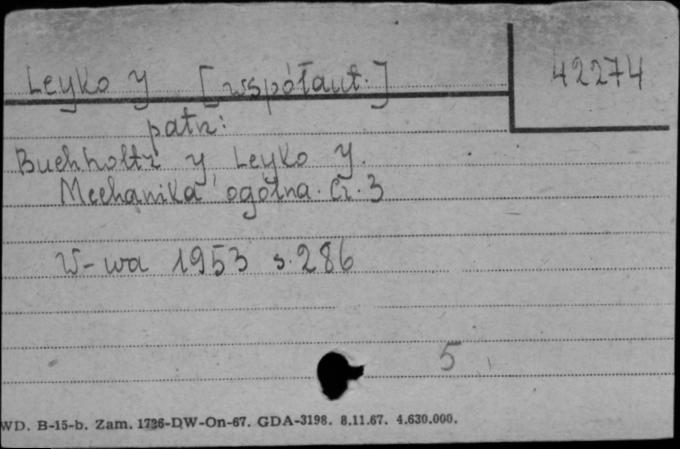 Leyko Y [współaut.]
42274
patrz:
Buchholtz Y Leyko Y.
Mechanika ogólna. Cz. 3
W-wa 1953 s. 286
5
WD. B-15-b. Zam. 1726-DW-On-67. GDA-3198. 8.11.67. 4.630.000.